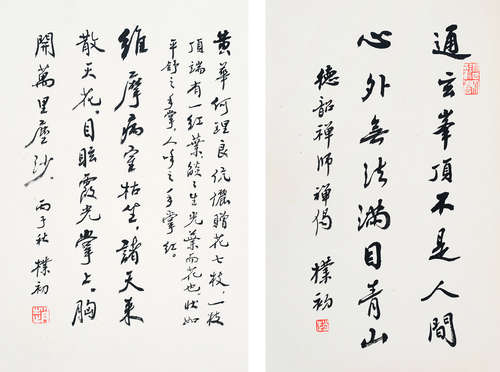 通玄峯頂不是人間
心外無法滿目青山
德韶禪師禪偈 樸初
黄華何理良伉儷贈花七枝，一枝
頂端有一红葉燄〻生光葉而花也，狀如
平舒之手掌，人呼之手掌红。
維摩病室枯坐，諸天來
散天花。目眩霞光掌上，胸
開萬里塵沙。丙子秋 樸初